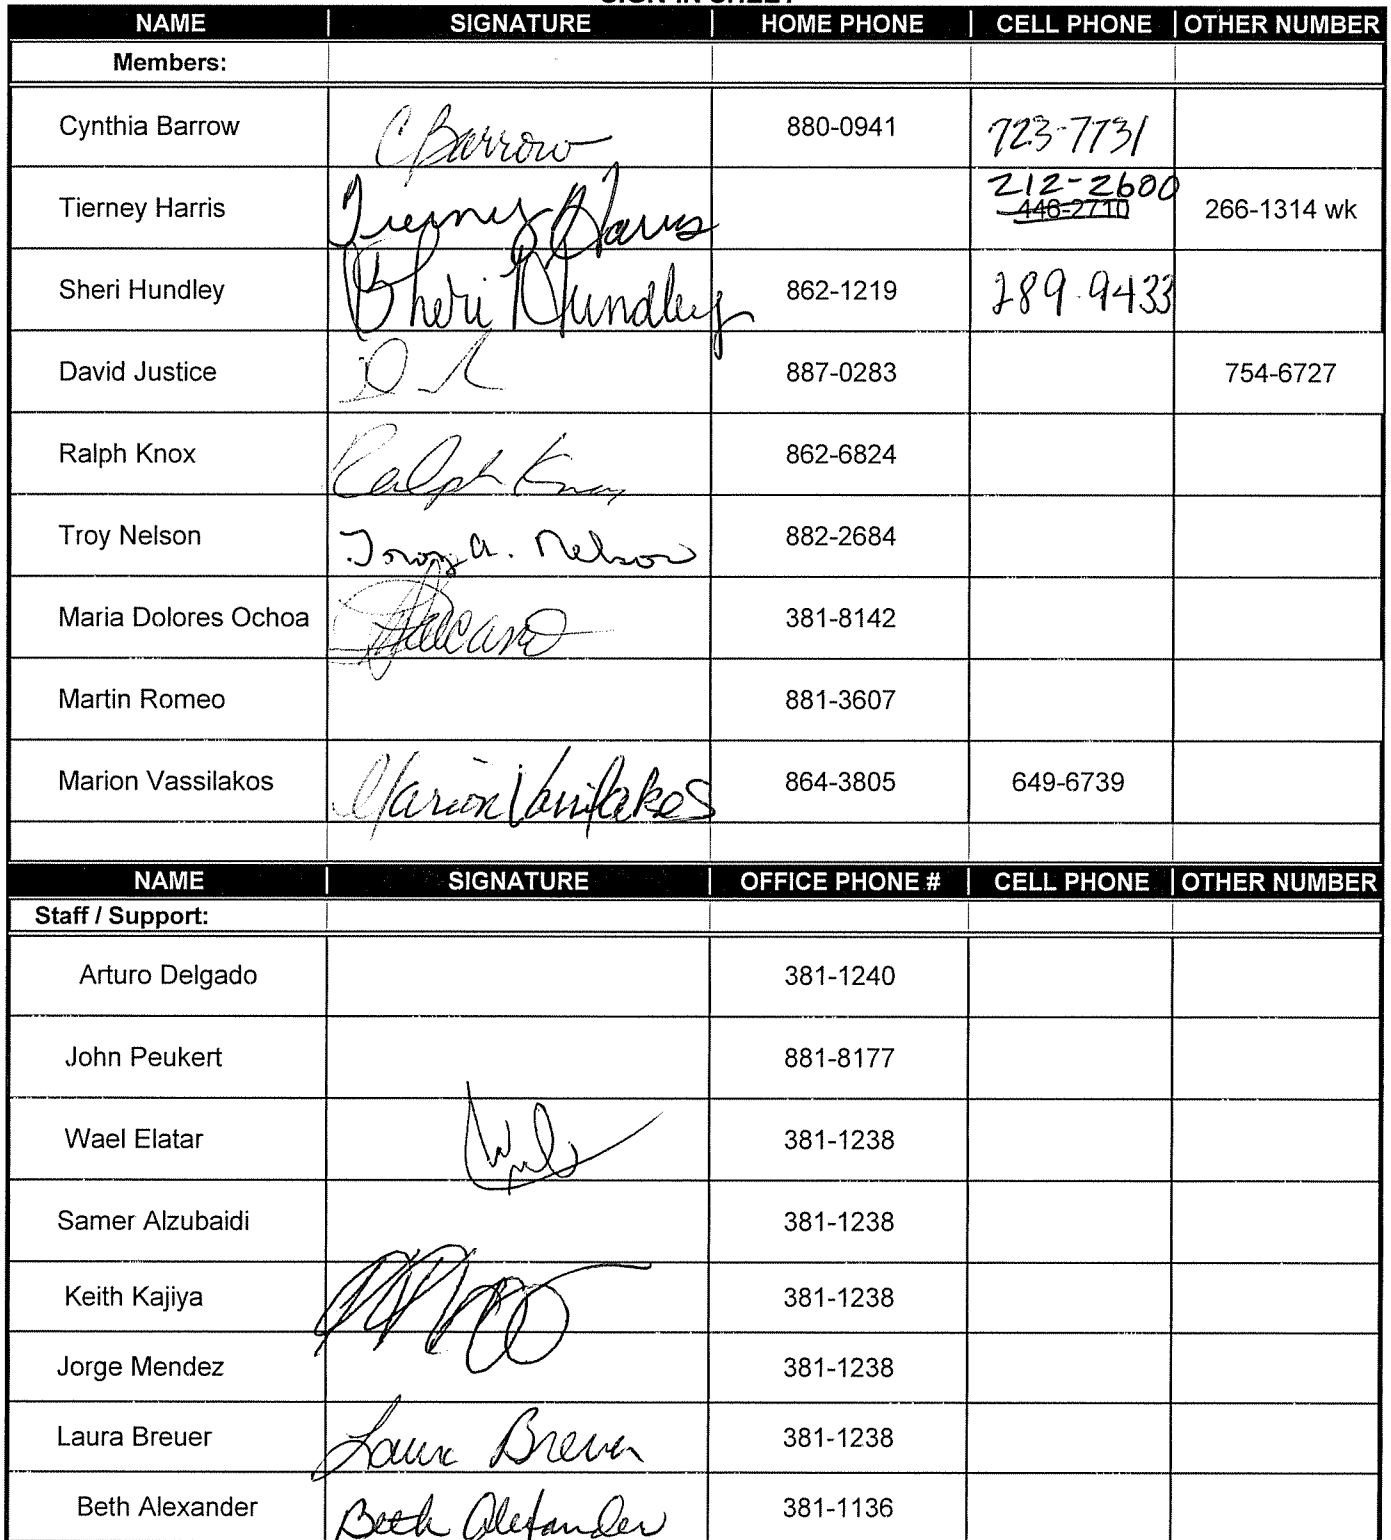 NAME SIGNATURE HOME PHONE CELL PHONE OTHER NUMBER
Members:
Cynthia Barrow C Barrow 880-0941 723-7731
212-2600
Tierney Harris Tierney Harris 446-2710 266-1314 wk
Sheri Hundley Sheri Hundley 862-1219 289-9433
David Justice 887-0283 754-6727
Ralph Knox Ralph Knox 862-6824
Troy Nelson Troy A. Nelson 882-2684
Maria Dolores Ochoa 381-8142
Martin Romeo 881-3607
Marion Vassilakos Marion Vassilakos 864-3805 649-6739
NAME SIGNATURE OFFICE PHONE # CELL PHONE OTHER NUMBER
Staff / Support:
Arturo Delgado 381-1240
John Peukert 881-8177
Wael Elatar 381-1238
Samer Alzubaidi 381-1238
Keith Kajiya 381-1238
Jorge Mendez 381-1238
Laura Breuer Laura Breuer 381-1238
Beth Alexander Beth Alexander 381-1136